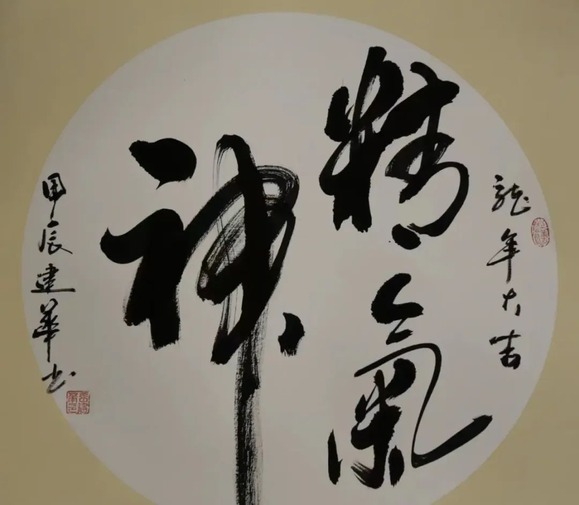 龍年大吉
精氣
神
甲辰建華书